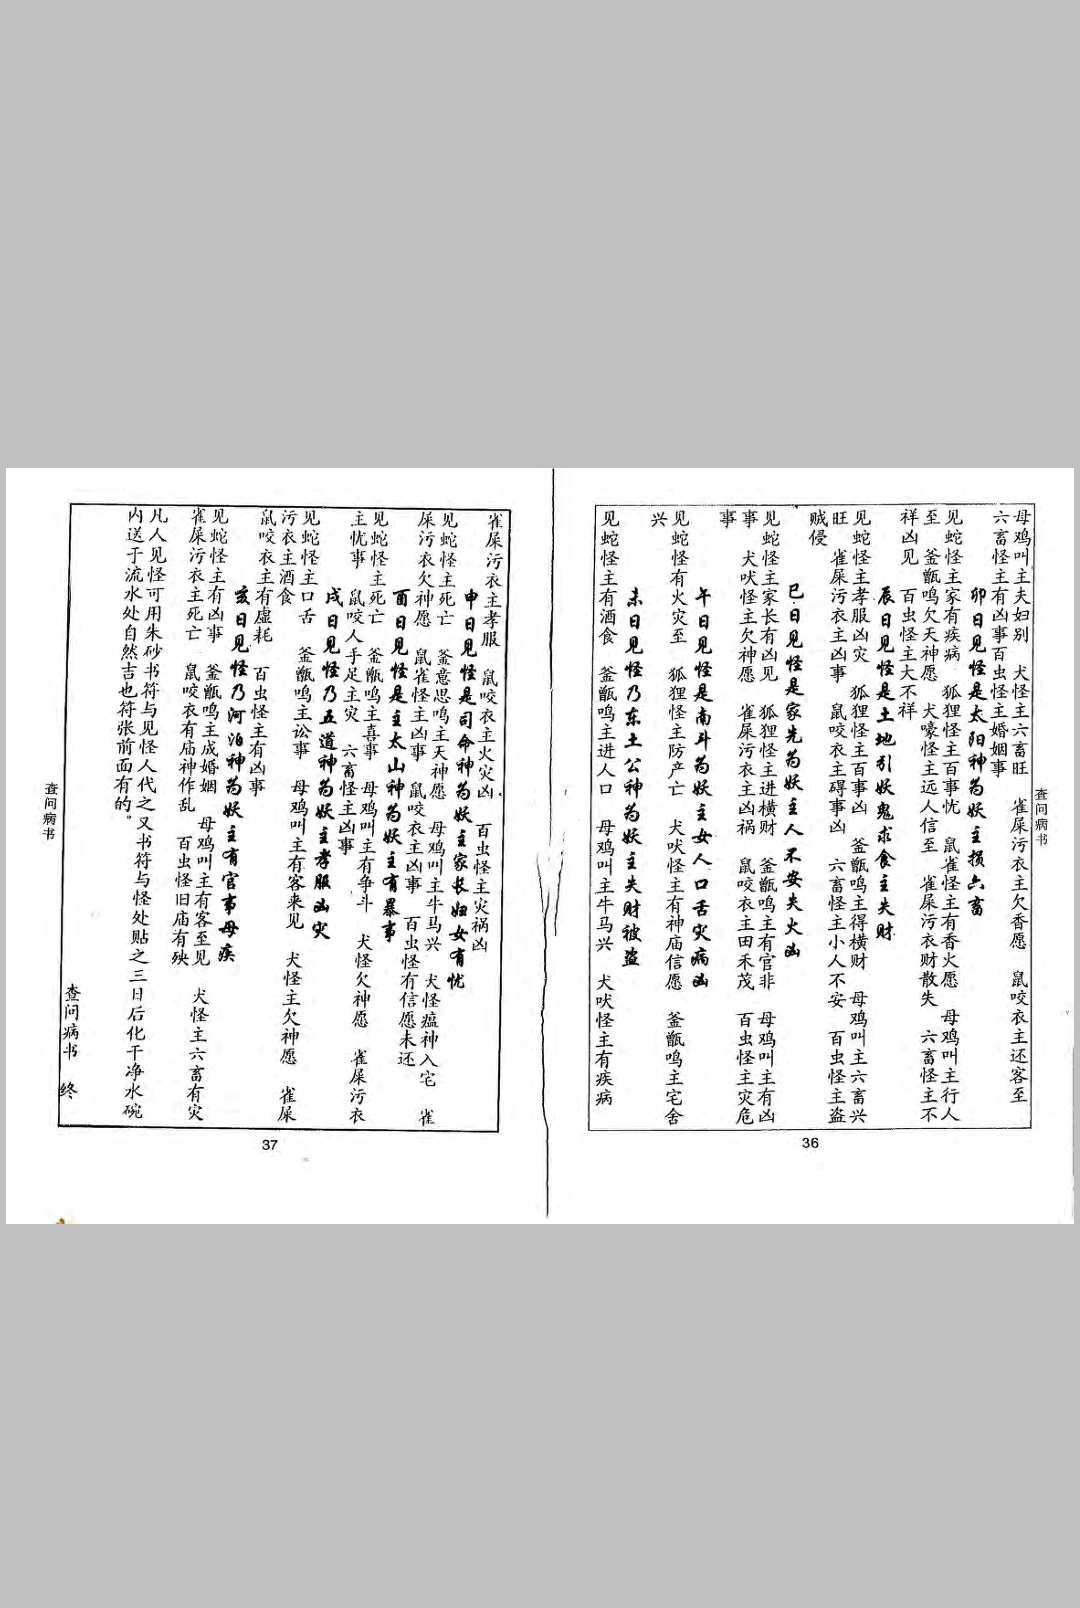 查问病书
母鸡叫主夫妇别 犬怪主六畜旺 雀屎污衣主欠香愿 鼠咬衣主还客至
六畜怪主有凶事百虫怪主婚姻事
卯日见怪是太阳神为妖主损六畜
见蛇怪主家有疾病 狐狸怪主百事忧 鼠雀怪主有香火愿 母鸡叫主行人
至 釜甑鸣欠天神愿 犬嚎怪主远人信至 雀屎污衣财散失 六畜怪主不
祥凶见 百虫怪主大不祥
辰日见怪是土地引妖鬼求食主失财
见蛇怪主孝服凶灾 狐狸怪主百事凶 釜甑鸣主得横财 母鸡叫主六畜兴
旺 雀屎污衣主凶事 鼠咬衣主碍事凶 六畜怪主小人不安 百虫怪主盗
贼侵
巳日见怪是家先为妖主人不安失火凶
见蛇怪主家长有凶见 狐狸怪主进横财 釜甑鸣主有官非 母鸡叫主有凶
事 犬吠怪主欠神愿 雀屎污衣主凶祸 鼠咬衣主田禾茂 百虫怪主灾危
事
午日见怪是南斗为妖主女人口舌灾病凶
见蛇怪有火灾至 狐狸怪主防产亡 犬吠怪主有神庙信愿 釜甑鸣主宅舍
兴
未日见怪乃东土公神为妖主失财被盗
见蛇怪主有酒食 釜甑鸣主进人口 母鸡叫主牛马兴 犬吠怪主有疾病
36
雀屎污衣主孝服 鼠咬衣主火灾凶 百虫怪主灾祸凶
申日见怪是司命神为妖主家长妇女有忧
见蛇怪主死亡 釜意思鸣主天神愿 母鸡叫主牛马兴 犬怪瘟神入宅 雀
屎污衣欠神愿 鼠雀怪主凶事 鼠咬衣主凶事 百虫怪有信愿未还
酉日见怪是主太山神为妖主有暴事
见蛇怪主死亡 釜甑鸣主喜事 母鸡叫主有争斗 犬怪欠神愿 雀屎污衣
主忧事 鼠咬人手足主灾 六畜怪主凶事
戌日见怪乃五道神为妖主孝服凶灾
见蛇怪主口舌 釜甑鸣主讼事 母鸡叫主有客来见 犬怪主欠神愿 雀屎
污衣主酒食
鼠咬衣主有虚耗 百虫怪主有凶事
亥日见怪乃河泊神为妖主有官事母疾
见蛇怪主有凶事 釜甑鸣主成婚姻 母鸡叫主有客至见 犬怪主六畜有灾
雀屎污衣主死亡 鼠咬衣有庙神作乱 百虫怪旧庙有殃
凡人见怪可用朱砂书符与见怪人代之又书符与怪处贴之三日后化于净水碗
内送于流水处自然吉也符张前面有的。
查问病书 终
查问病书
37